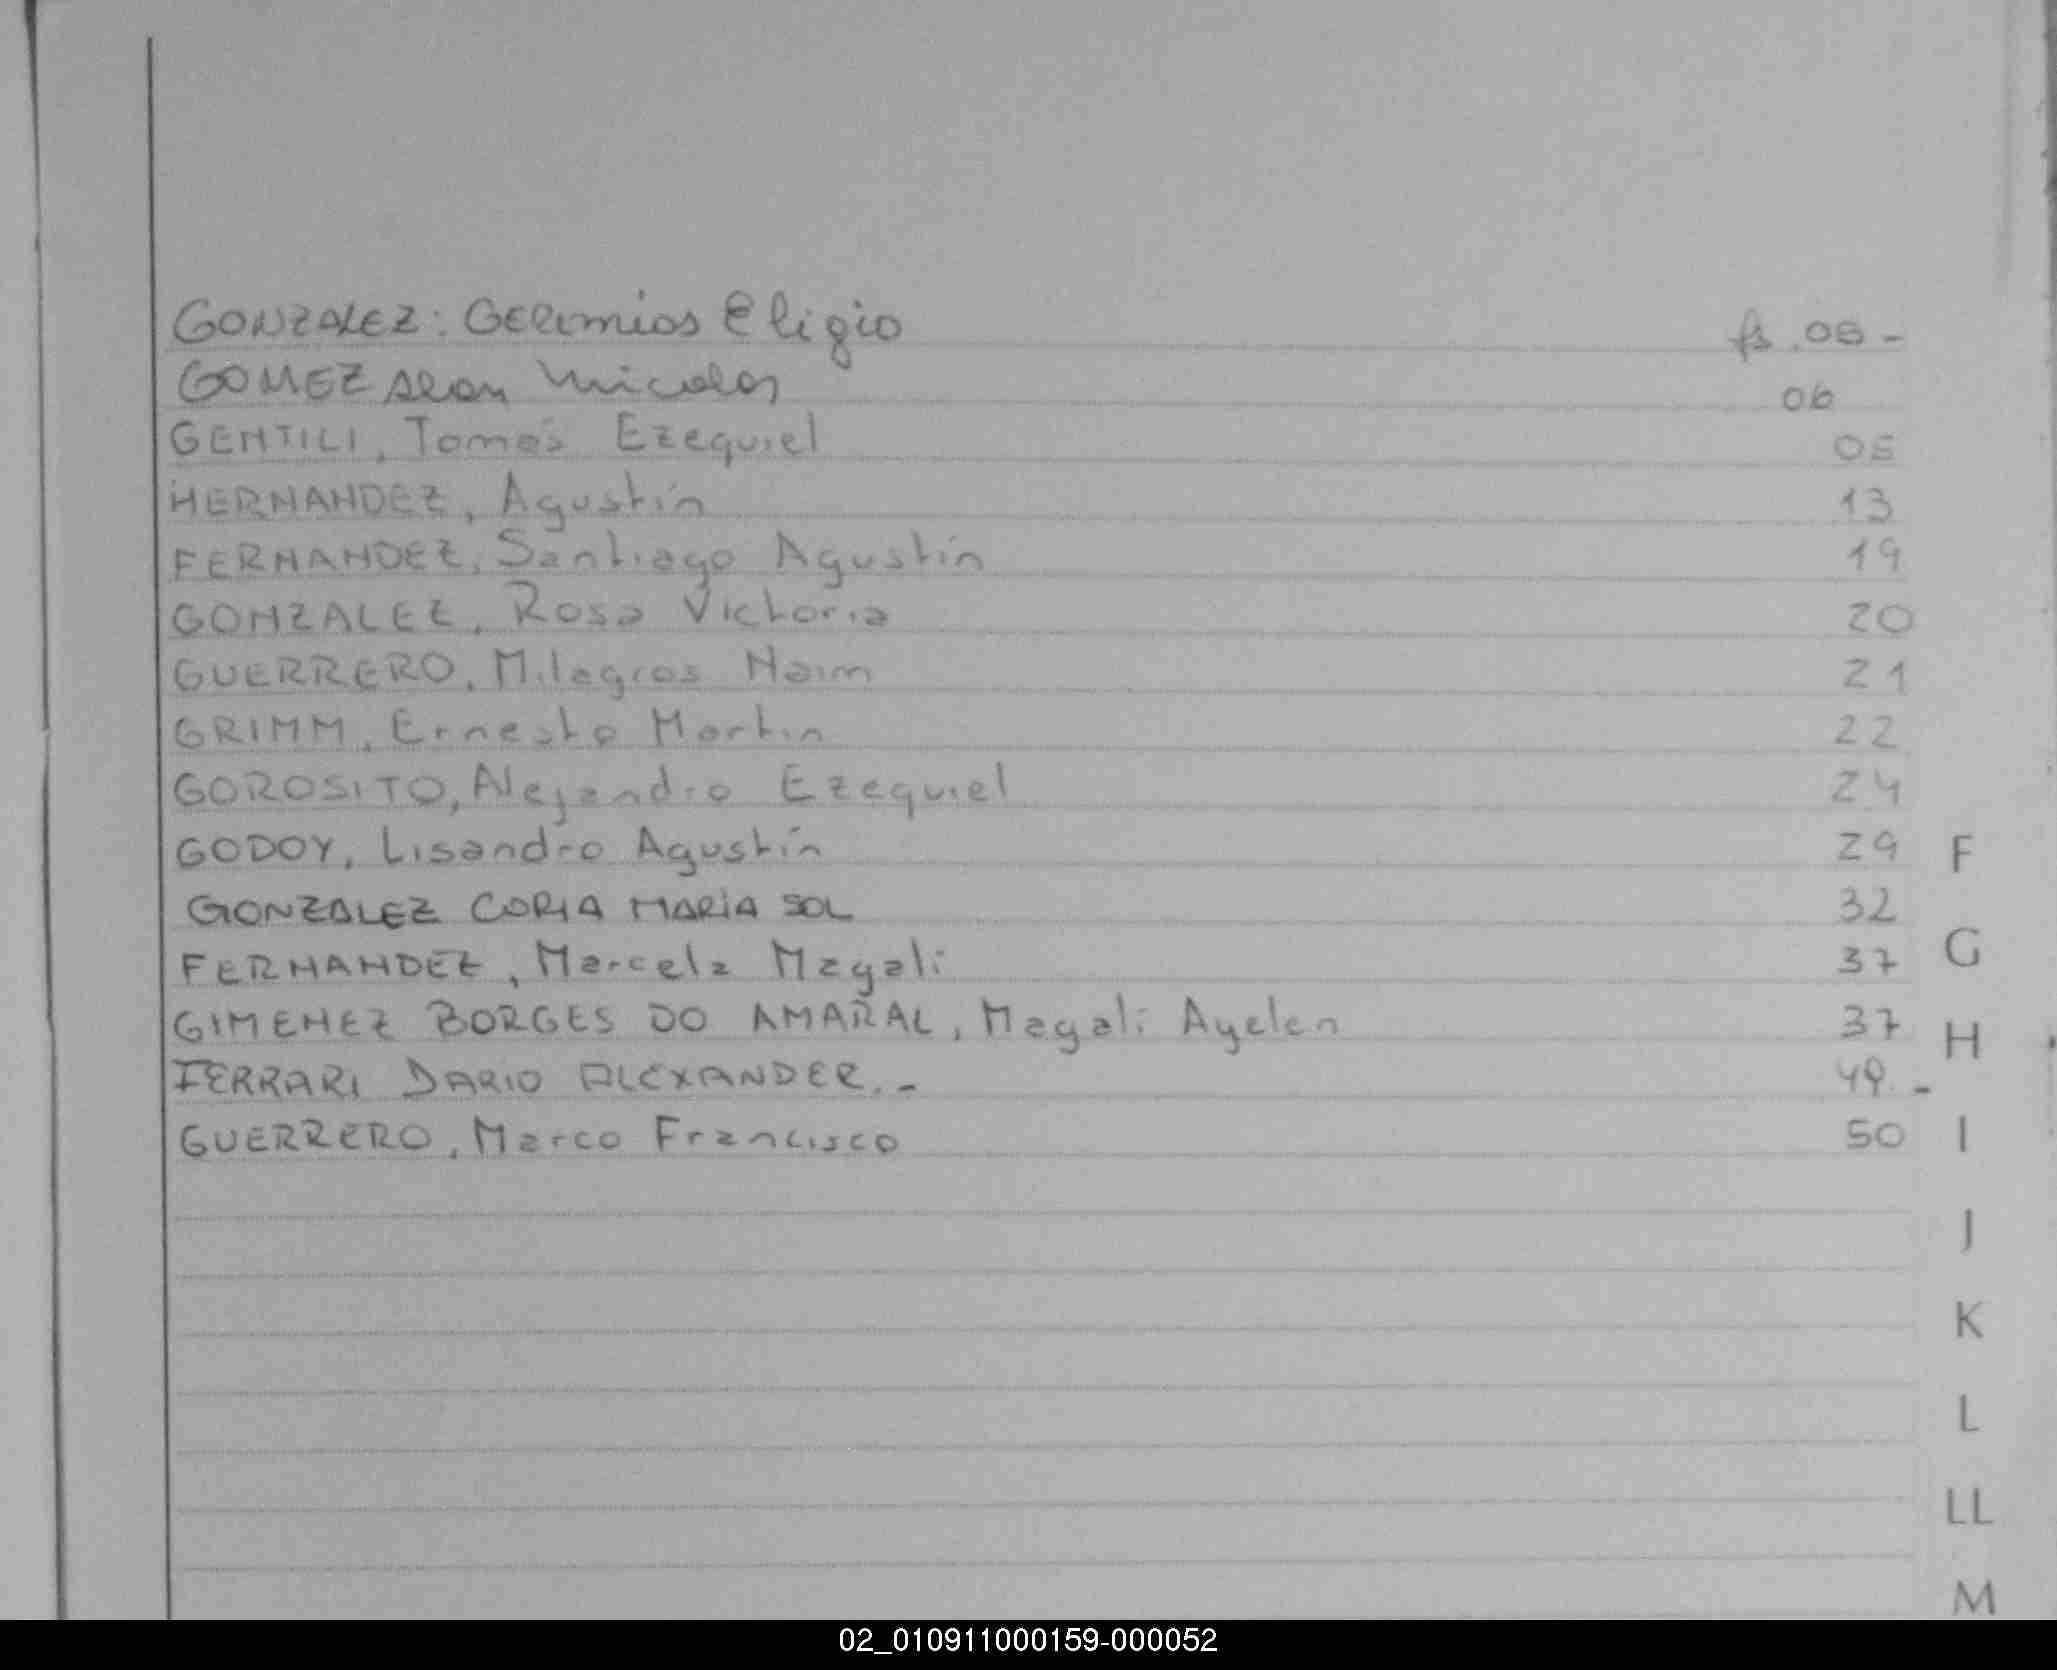 GONZALEZ: GEREmias Eligio fs .05 -
GOMEZ Nicolas 06
GENTILI, Tomás Ezequiel 05
HERNANDEZ, Agustín 13
FERNANDEZ, Santiago Agustín 19
GONZALEZ, Rosa Victoria 20
GUERRERO, Milagros Naim 21
GRIMM, Ernesto Martin 22
GOROSITO, Alejandro Ezequiel 24
GODOY, Lisandro Agustín 29
F
GONZALEZ CORIA MARIA SOL 32
FERNANDEZ, Marcela Magali 37
G
GIMENEZ BORGES DO AMARAL, Magali Ayelen 37
H
FERRARI DARIO ALEXANDER. - 49. -
GUERRERO, Marco Francisco 50
I
J
K
L
LL
M
02_010911000159-000052